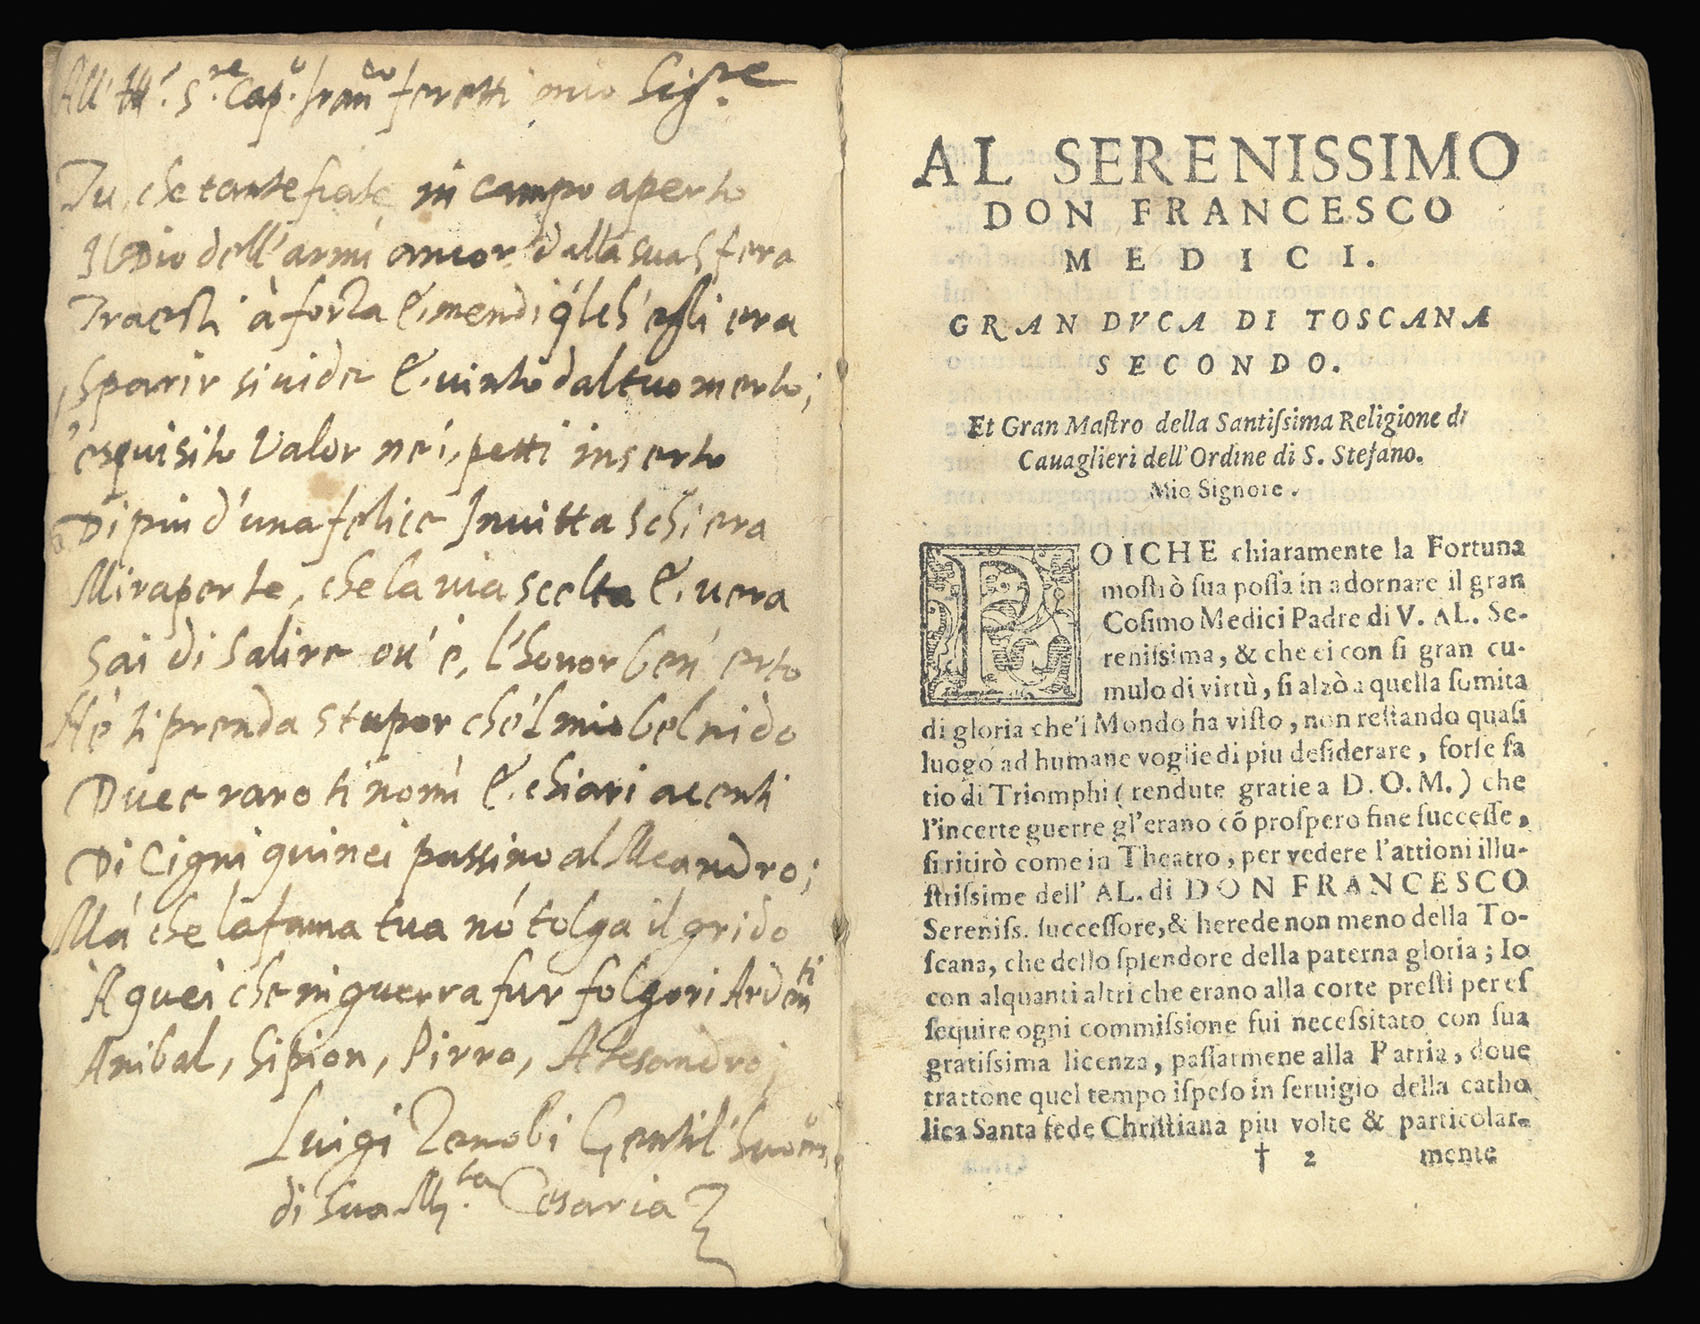 All' Ill.ʳᵉ S.ʳᵉ Cap.º Franᶜᵒ feretti mio Sig.ʳᵉ
Tu, che tante fiate in campo aperto
Il Dio dell'armi ancor dalla sua sfera
Traesti à forza &. mendi q'lch'egli era
Sparir si vide &. vinto dal tuo merto;
L'esquisito Valor ne i petti inserto
Di piu d'una felice Invitta schiera
Mira per te, che la via scelta &. vera
Sai di salire ov'è, l'honor ben' erto
Nè ti prenda stupor che'l mio bel nido
Duce raro ti nomi &. chiari acenti
Di Cigni quinci passino al Meandro;
Má che la fama tua nó tolga il grido
A quei che in guerra fur folgori Ardenti
Anibal, Sipion, Pirro, Alesandro;
Luigi Zenobi Gentil'huomº
di Sua M.ᵗᵃ Cesaria
AL SERENISSIMO
DON FRANCESCO
MEDICI.
GRAN DVCA DI TOSCANA
SECONDO.
Et Gran Maſtro della Santiſsima Religione di
Cauaglieri dell'Ordine di S. Stefano.
Mio Signore.
POICHE chiaramente la Fortuna
moſtrò ſua poſſa in adornare il gran
Coſimo Medici Padre di V. AL. Se-
reniſsima, & che ei con ſi gran cu-
mulo di virtù, ſi alzò a quella ſumita
di gloria che'i Mondo ha viſto, non reſtando quaſi
luogo ad humane voglie di piu deſiderare, forſe ſa
tio di Triomphi (rendute gratie a D. O. M.) che
l'incerte guerre gl'erano cõ proſpero fine ſucceſſe,
ſi ritirò come in Theatro, per vedere l'attioni illu-
ſtriſsime dell' AL. di DON FRANCESCO
Sereniſs. ſucceſſore, & herede non meno della To-
ſcana, che dello ſplendore della paterna gloria; Io
con alquanti altri che erano alla corte preſti per eſ
ſequire ogni commiſsione fui neceſsitato con ſua
gratiſsima licenza, paſſarmene alla Patria, doue
trattone quel tempo iſpeſo in ſeruigio della catho
lica Santa fede Chriſtiana piu volte & particolar-
† 2 mente